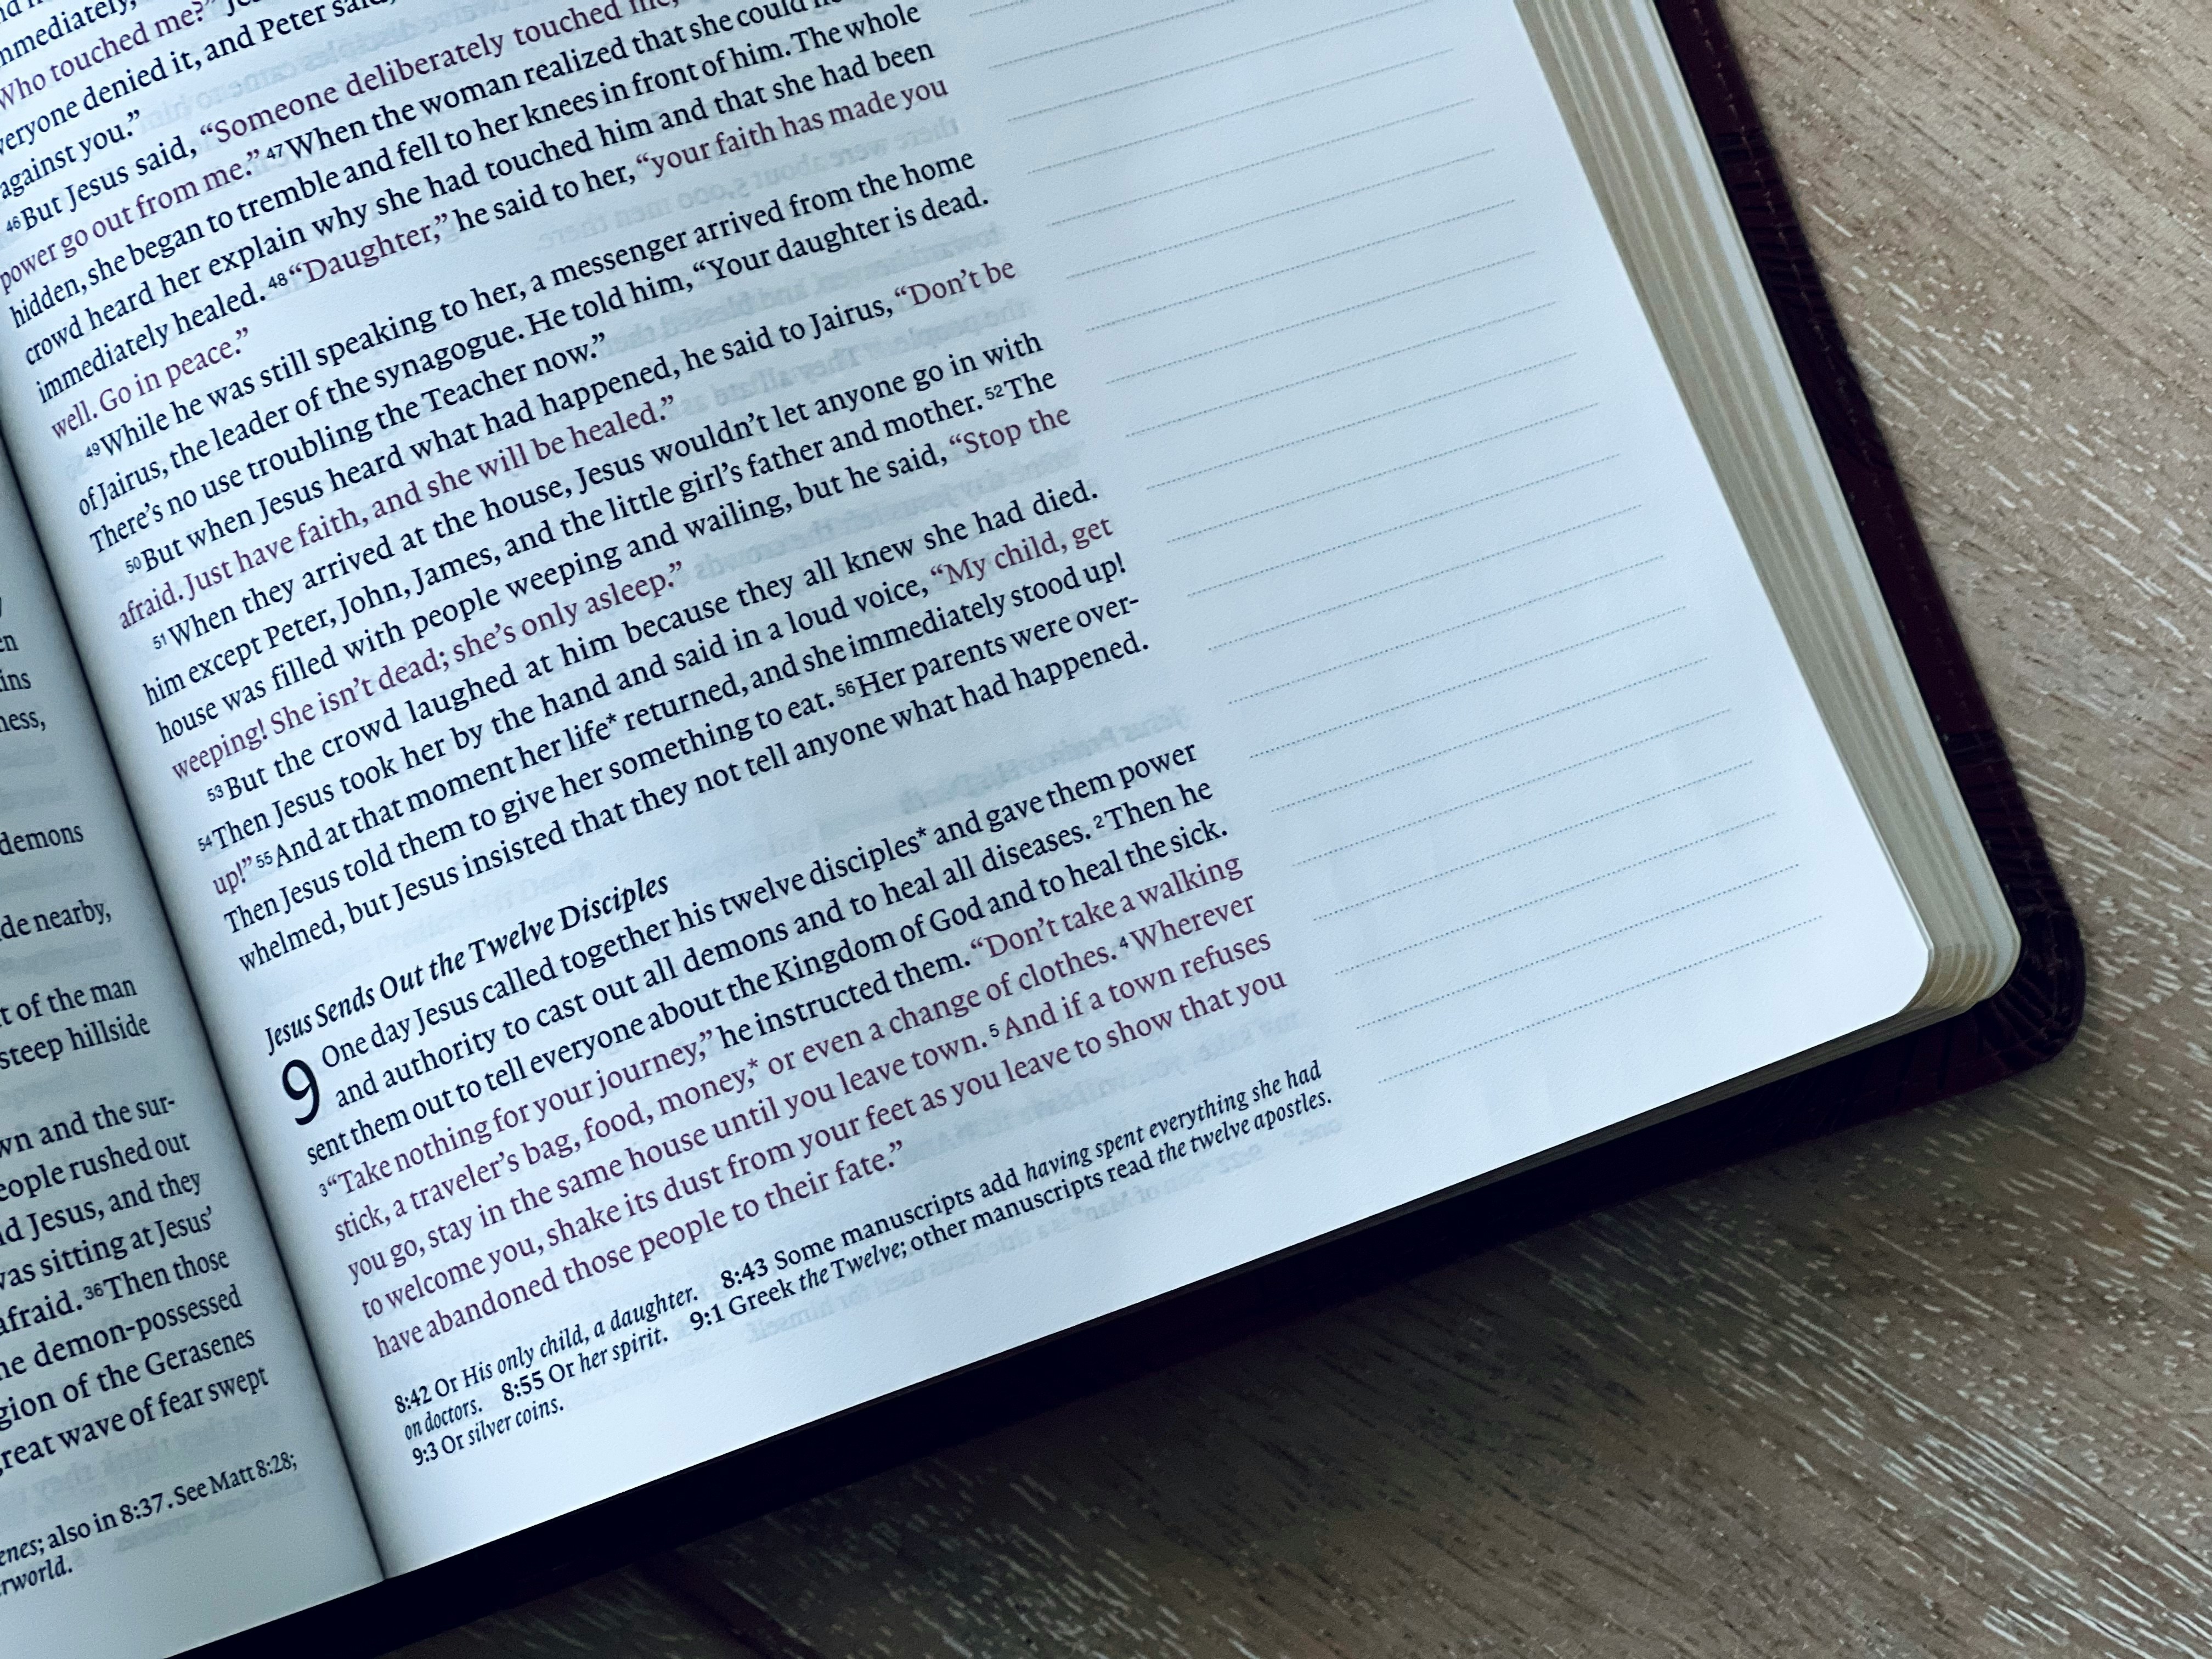 en
ins
ness,
demons
de nearby,
t of the man
steep hillside
wn and the sur-
eople rushed out
d Jesus, and they
was sitting at Jesus’
afraid. 36Then those
he demon-possessed
gion of the Gerasenes
great wave of fear swept
enes; also in 8:37. See Matt 8:28;
rworld.
mmediately,
Who touched me?”
veryone denied it, and Peter said,
against you.”
46But Jesus said, “Someone deliberately touched me,
power go out from me.” 47When the woman realized that she could
hidden, she began to tremble and fell to her knees in front of him. The whole
crowd heard her explain why she had touched him and that she had been
immediately healed. 48“Daughter,” he said to her, “your faith has made you
well. Go in peace.”
49While he was still speaking to her, a messenger arrived from the home
of Jairus, the leader of the synagogue. He told him, “Your daughter is dead.
There’s no use troubling the Teacher now.”
50But when Jesus heard what had happened, he said to Jairus, “Don’t be
afraid. Just have faith, and she will be healed.”
51When they arrived at the house, Jesus wouldn’t let anyone go in with
him except Peter, John, James, and the little girl’s father and mother. 52The
house was filled with people weeping and wailing, but he said, “Stop the
weeping! She isn’t dead; she’s only asleep.”
53But the crowd laughed at him because they all knew she had died.
54Then Jesus took her by the hand and said in a loud voice, “My child, get
up!” 55And at that moment her life* returned, and she immediately stood up!
Then Jesus told them to give her something to eat. 56Her parents were over-
whelmed, but Jesus insisted that they not tell anyone what had happened.
Jesus Sends Out the Twelve Disciples
9 One day Jesus called together his twelve disciples* and gave them power
and authority to cast out all demons and to heal all diseases. 2Then he
sent them out to tell everyone about the Kingdom of God and to heal the sick.
3“Take nothing for your journey,” he instructed them. “Don’t take a walking
stick, a traveler’s bag, food, money,* or even a change of clothes. 4Wherever
you go, stay in the same house until you leave town. 5And if a town refuses
to welcome you, shake its dust from your feet as you leave to show that you
have abandoned those people to their fate.”
8:42 Or His only child, a daughter. 8:43 Some manuscripts add having spent everything she had
on doctors. 8:55 Or her spirit. 9:1 Greek the Twelve; other manuscripts read the twelve apostles.
9:3 Or silver coins.